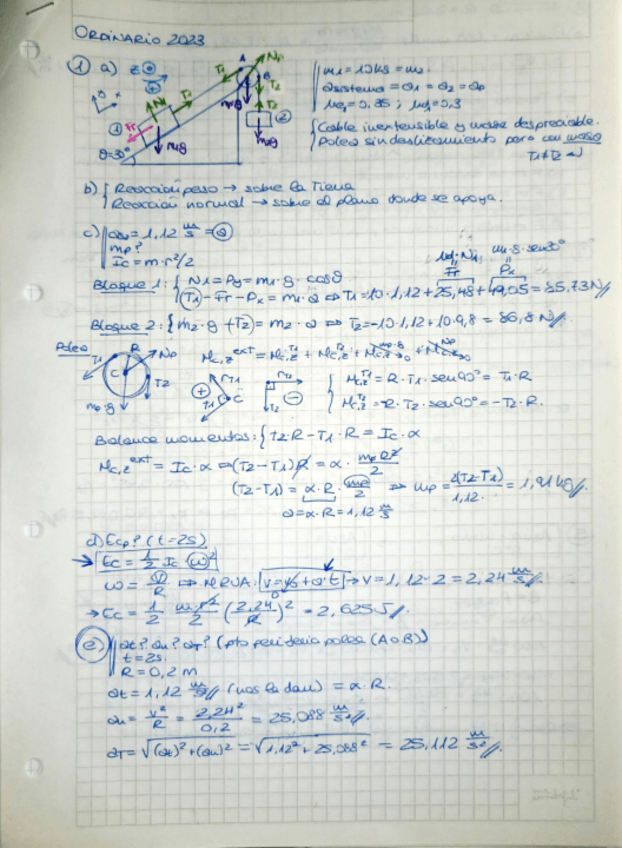 ORDINARIO 2023
① a)
m1 = 10 kg = m2
asistema = a1 = a2 = ap
Cable inextensible y masa despreciable.
Polea sin deslizamiento pero con masa
T1 ≠ T2
θ=30°
m1g
m2g
b) Reacción peso → sobre la Tierra
Reacción normal → sobre el plano donde se apoya.
c) = 1,12 m/s = a
mp?
Ic = m·r²/2
μd·N1 m1·g·sen30°
Fr Px
Bloque 1: { N1 = Py = m1·g·cosθ
T1 - Fr - Px = m1·a ⇒ T1 = 10·1,12 + 25,48 + 49,05 = 85,73 N
Bloque 2: { m2·g + T2 = m2·a ⇒ T2 = -10·1,12 + 10·9,8 = 86,8 N
Polea
T1 R Np C T2
mp·g
= R·T1·sen90° = T1·R
= -R·T2·sen90° = -T2·R.
Balance momentos: { T2·R - T1·R = Ic·α
Mc,z ext = Ic·α ⇒ (T2-T1)R = α· mp R²/2
(T2-T1) = α·R· mp/2 ⇒ mp = 2(T2-T1)/1,12 = 1,91 kg
a = α·R = 1,12 m/s
d) Ecp? (t=2s)
→ Ec = 1/2 Ic ω²
ω = v/R ⇒ MRUA: v = v0 + a·t → v = 1,12·2 = 2,24 m/s
→ Ec = 1/2 m·r²/2 (2,24/R)² = 2,625 J
e) at? an? aT? (pto periferia polea (A o B))
t=2s.
R = 0,2 m
at = 1,12 (nos la dan) = α·R.
an = v²/R = 2,24²/0,2 = 25,088 m/s²
aT = √(at)²+(an)² = √1,12²+25,088² = 25,112 m/s²